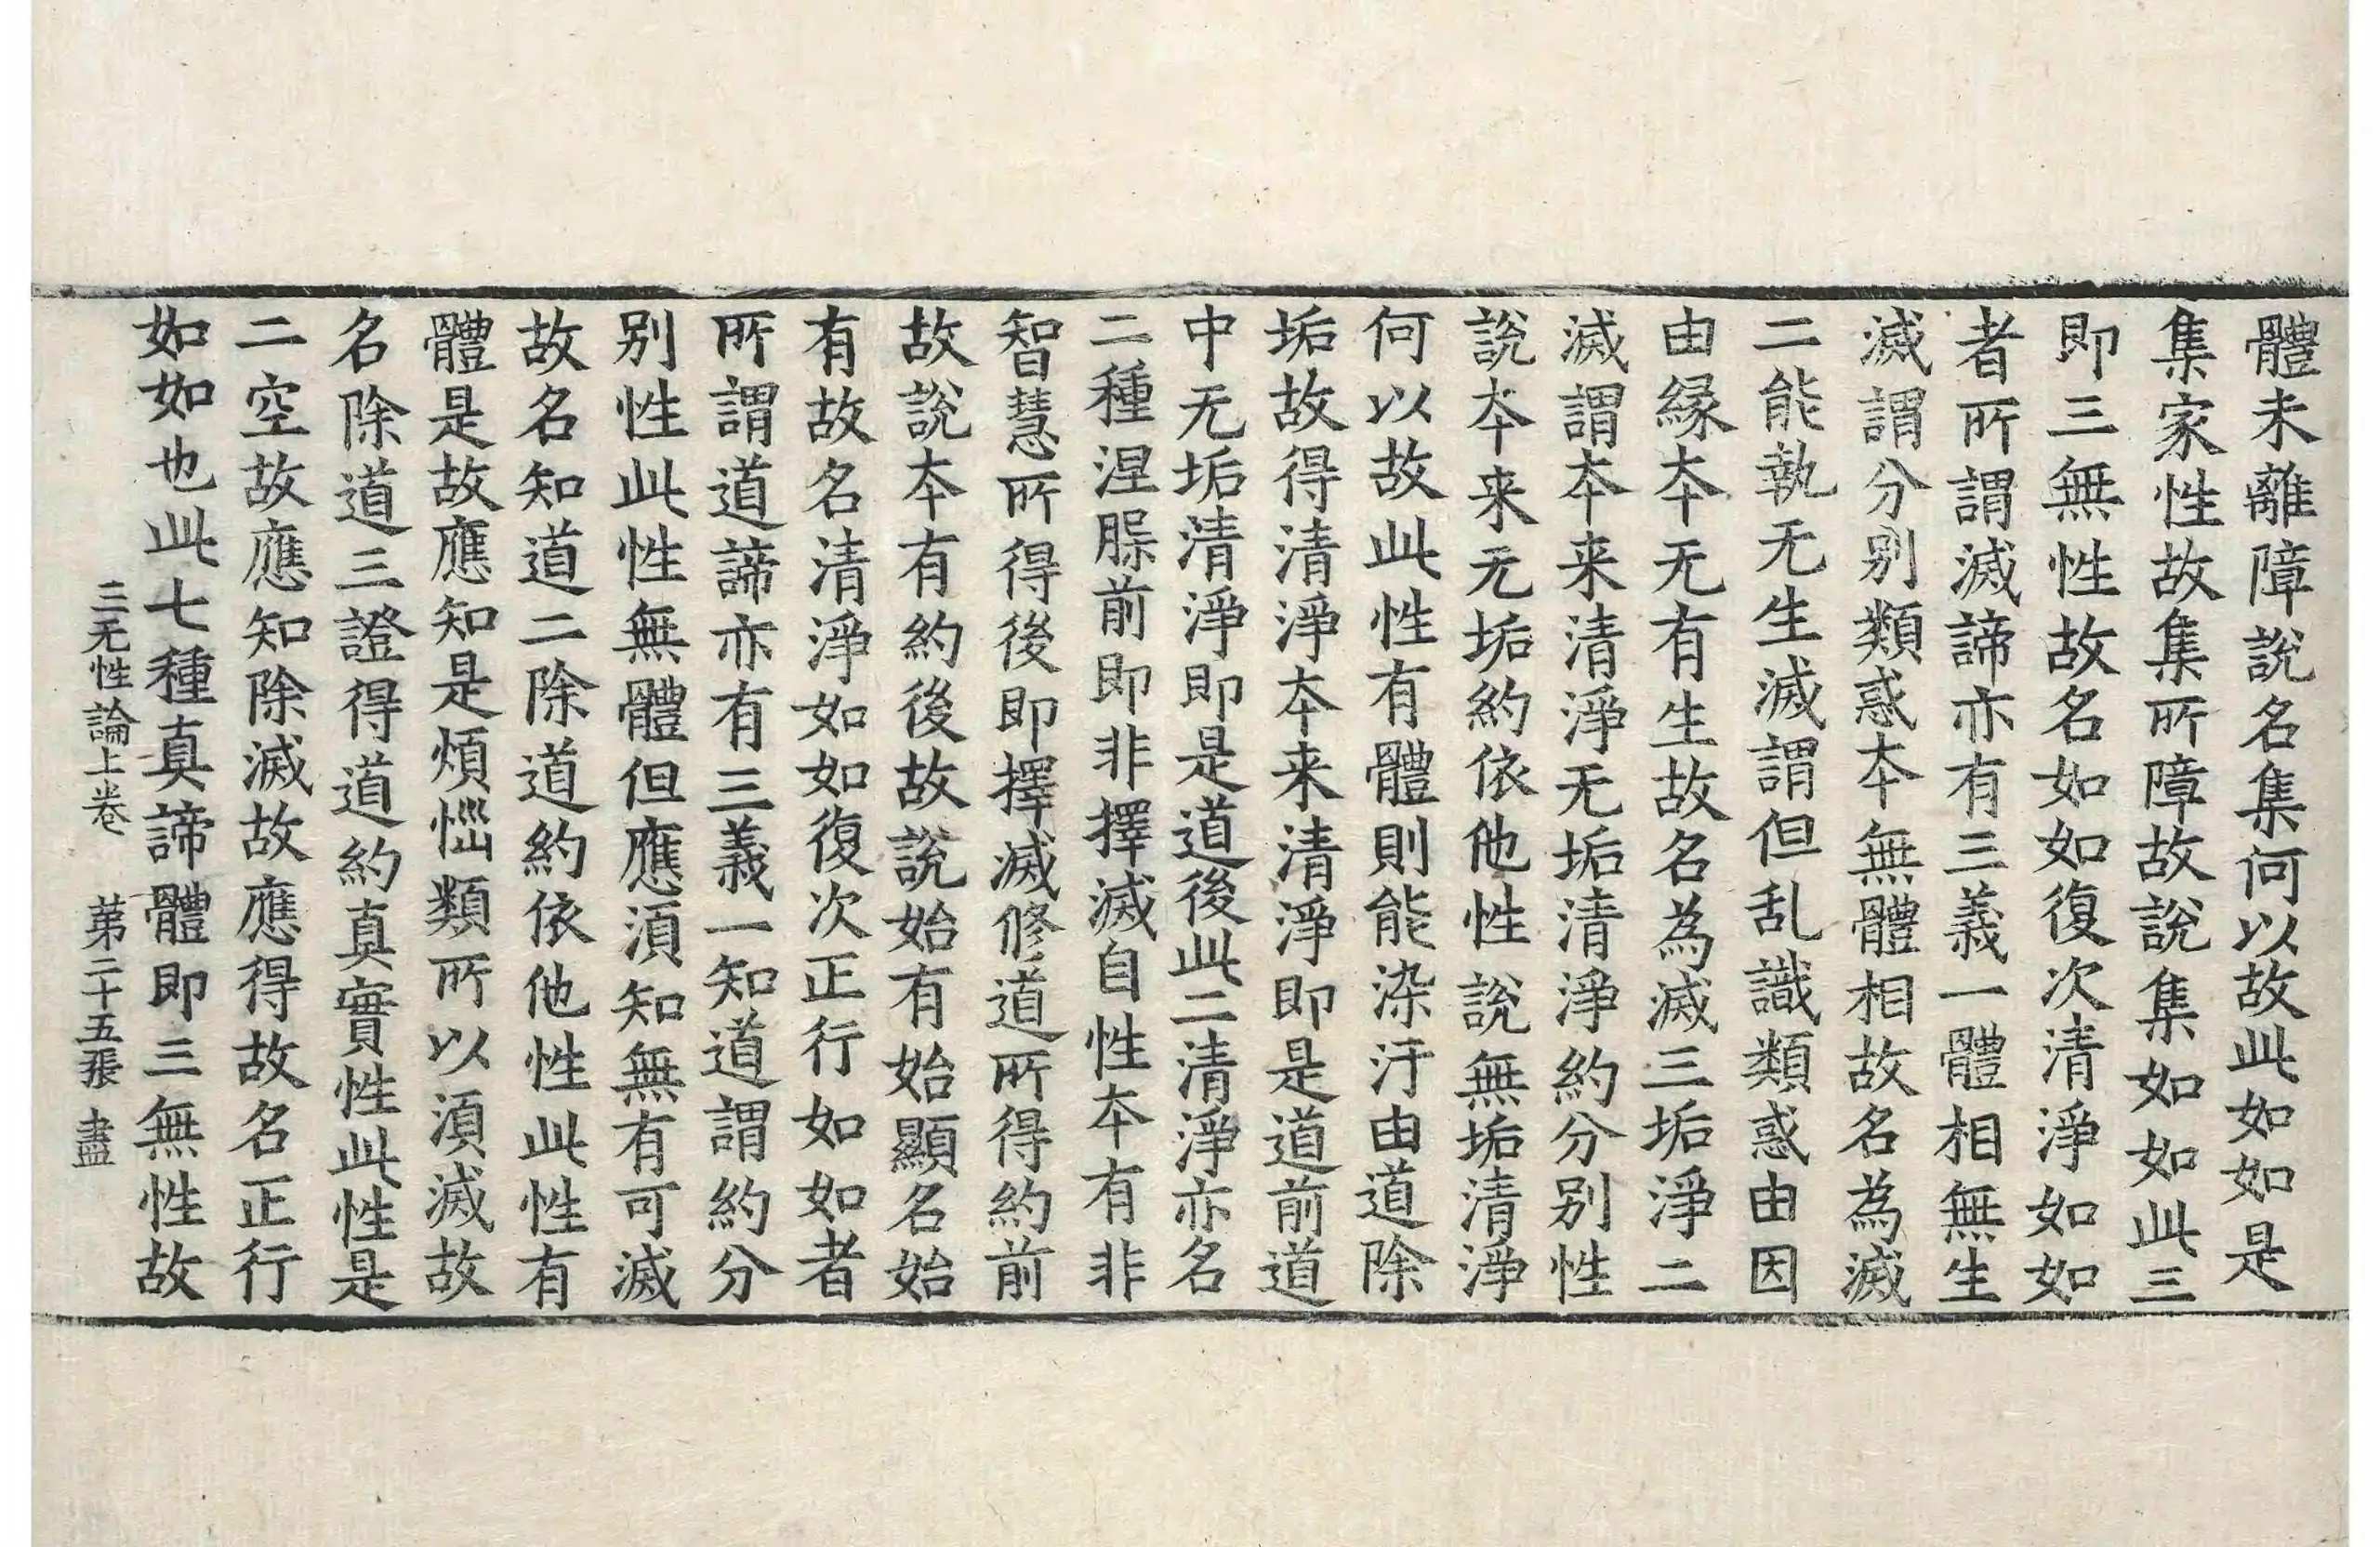 體未離障說名集何以故此如如是
集家性故集所障故說集如如此三
即三無性故名如如復次清淨如如
者所謂滅諦亦有三義一體相無生
滅謂分别類惑夲無體相故名為滅
二能執无生滅謂但乱識類惑由因
由緣夲无有生故名為滅三垢淨二
滅謂夲来清淨无垢清淨約分别性
說夲来无垢約依他性說無垢清淨
何以故此性有體則能染汙由道除
垢故得清淨夲来清淨即是道前道
中无垢清淨即是道後此二清淨亦名
二種涅槃前即非擇滅自性夲有非
智慧所得後即擇滅修道所得約前
故說夲有約後故說始有始顯名始
有故名清淨如如復次正行如如者
所謂道諦亦有三義一知道謂約分
别性此性無體但應湏知無有可滅
故名知道二除道約依他性此性有
體是故應知是煩惱類所以湏滅故
名除道三證得道約真實性此性是
二空故應知除滅故應得故名正行
如如也此七種真諦體即三無性故
三无性論上卷 第二十五張 盡